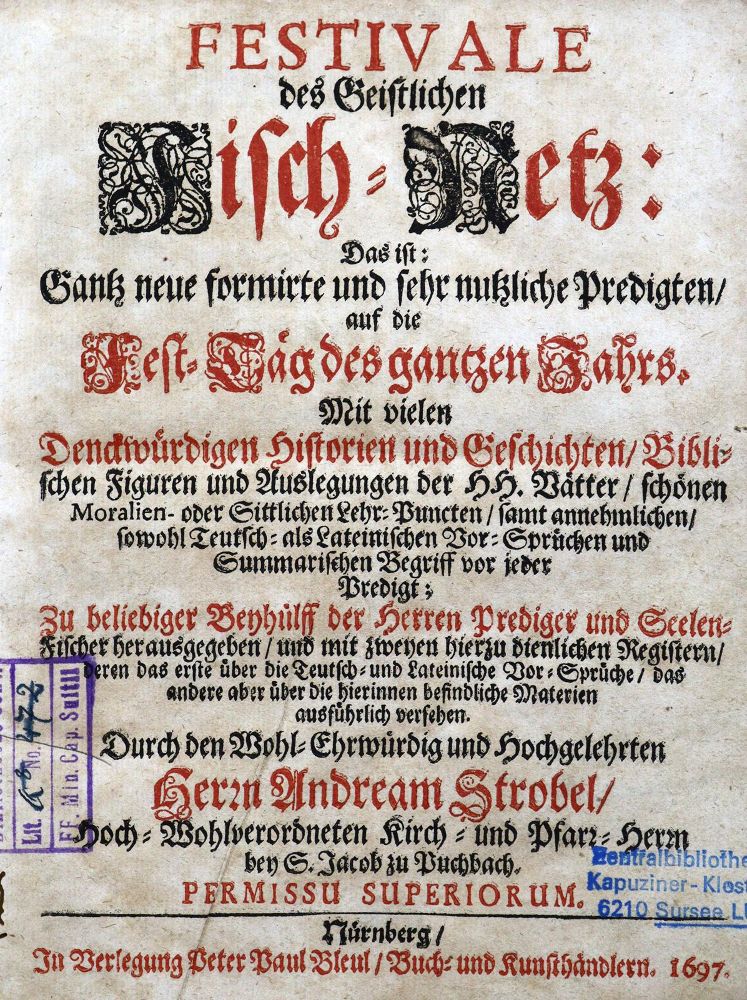 FESTIVALE
des Geistlichen
Fisch-Netz:
Das ist:
Gantz neue formirte und sehr nutzliche Predigten/
auf die
Fest-Täg des gantzen Jahrs.
Mit vielen
Denckwürdigen Historien und Geschichten/ Bibli-
schen Figuren und Auslegungen der HH. Vätter/ schönen
Moralien- oder Sittlichen Lehr-Puncten/ samt annehmlichen/
sowohl Teutsch- als Lateinischen Vor-Sprüchen und
Summarischen Begriff vor jeder
Predigt;
Zu beliebiger Beyhülff der Herren Prediger und Seelen-
Fischer herausgegeben/ und mit zweyen hierzu dienlichen Registern/
deren das erste über die Teutsch- und Lateinische Vor-Sprüche/ das
andere aber über die hierinnen befindliche Materien
ausführlich versehen.
Durch den Wohl-Ehrwürdig und Hochgelehrten
Herrn Andream Strobel/
Hoch-Wohlverordneten Kirch- und Pfarr-Herrn
bey S. Jacob zu Puchbach.
PERMISSU SUPERIORUM.
Nürnberg/
In Verlegung Peter Paul Bleul/ Buch- und Kunsthändlern. 1697.
Lit. No. 472
FF. Min. Cap.
Zentralbibliothe
Kapuziner-Klost
6210 Sursee LU